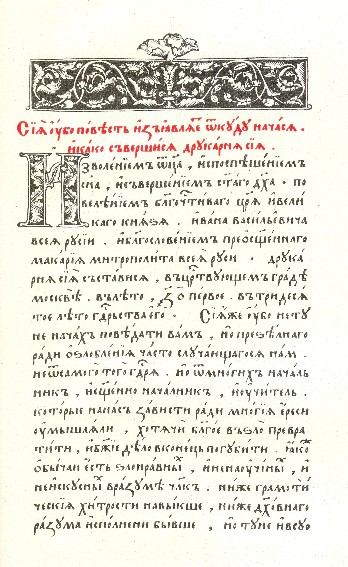 Сїѧ̀ ᲂу҆́бо по́вѣсть и҆з̾ꙗвлѧ́етъ ѿкꙋ́дꙋ нача́сѧ .
и҆ка́ко съверши́сѧ дрꙋка́рнѧ сїѧ̀ .
И҆зволе́нїемъ ѻ҆ц҃а̀ , и҆споспѣше́нїемъ
сн҃а , и҆съверше́нїемъ ст҃а́го дх҃а · по
велѣ́нїемъ бл҃гочти́ваго цр҃ѧ̀ и҆вели
каго кнѧ́ѕѧ . и҆ва́на васи́льевича
всеѧ̀ рꙋсі́и . и҆бл҃гослове́нїемъ преѡсщ҃е́ннаго
мака́рїѧ митрополи́та всеѧ̀ рꙋси · дрꙋка́
рнѧ сїѧ̀ съста́висѧ , въцр҃твꙋющемъ гра́дѣ
москвѣ̀ . влѣ́то , ҂з҃о пе́рвое . втри́десѧ
тое лѣ́то гдⷭ҇рьства є҆го̀ · Сїѧ́же ᲂу҆́бо нетꙋ
не нача́хъ повѣ́дати ва́мъ , но̀ преѕе́лнаго
ра́ди ѡ҆ѕлобле́нїѧ ча́сто слꙋча́ющагосѧ на́м .
неѿсамого̀ того̀ гдⷭ҇рѧ̀ . но̀ ѿмно́гих нача́ль
никъ , и҆сщ҃е́нно нача́лникъ , и҆ᲂу҆чи́тель .
кото́рые нана́съ за́висти ра́ди мно́гїѧ є҆́реси
ᲂу҆мышлѧ́ли , хотѧ́чи бл҃го́е въѕло̀ превра
ти́ти , и҆бж҃їе дѣ́ло вконе́цъ погꙋби́ти . ꙗ҆́коⷤ
ѻ҆бы́чаи є҆́сть ѕлонра́вныⷯ , и҆ненаꙋче́ныⷯ , и҆
неискꙋсныⷯ вра́зꙋмѣ чл҃къ . нижѐ грамоти́ⷱ
ческїѧ хи́трости навы́кше , нижѐ дх҃о́внаго
ра́зꙋма и҆спо́лнени бы́вше , но̀ тꙋ́не и҆всꙋ́о